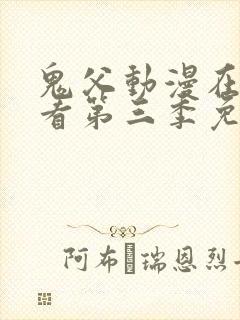 鬼父動漫在
看第三季免
阿布·瑞恩烈